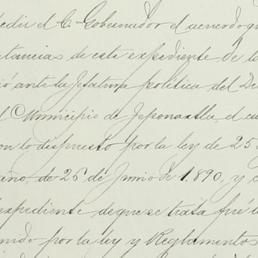 edir el C. Gobernador el acuerdo q
stancias de este expediente de to
ió ante la Jefatura política del D
l Municipio de Jeponaxtla, el cu
on lo dispuesto por la ley de 25
año, de 26 de Junio de 1890, y c
expediente de que se trata fué
nado por la ley y Reglamentos